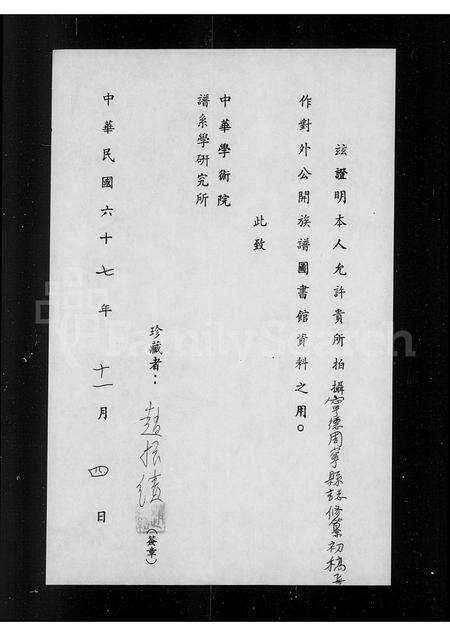 茲證明本人允許貴所拍攝寧德周寧縣誌修纂初稿
作對外公開族譜圖書館資料之用。
此致
中華學術院
譜系學研究所
珍藏者：趙振績
(簽章)
中華民國六十七年十一月四日
FamilySearch